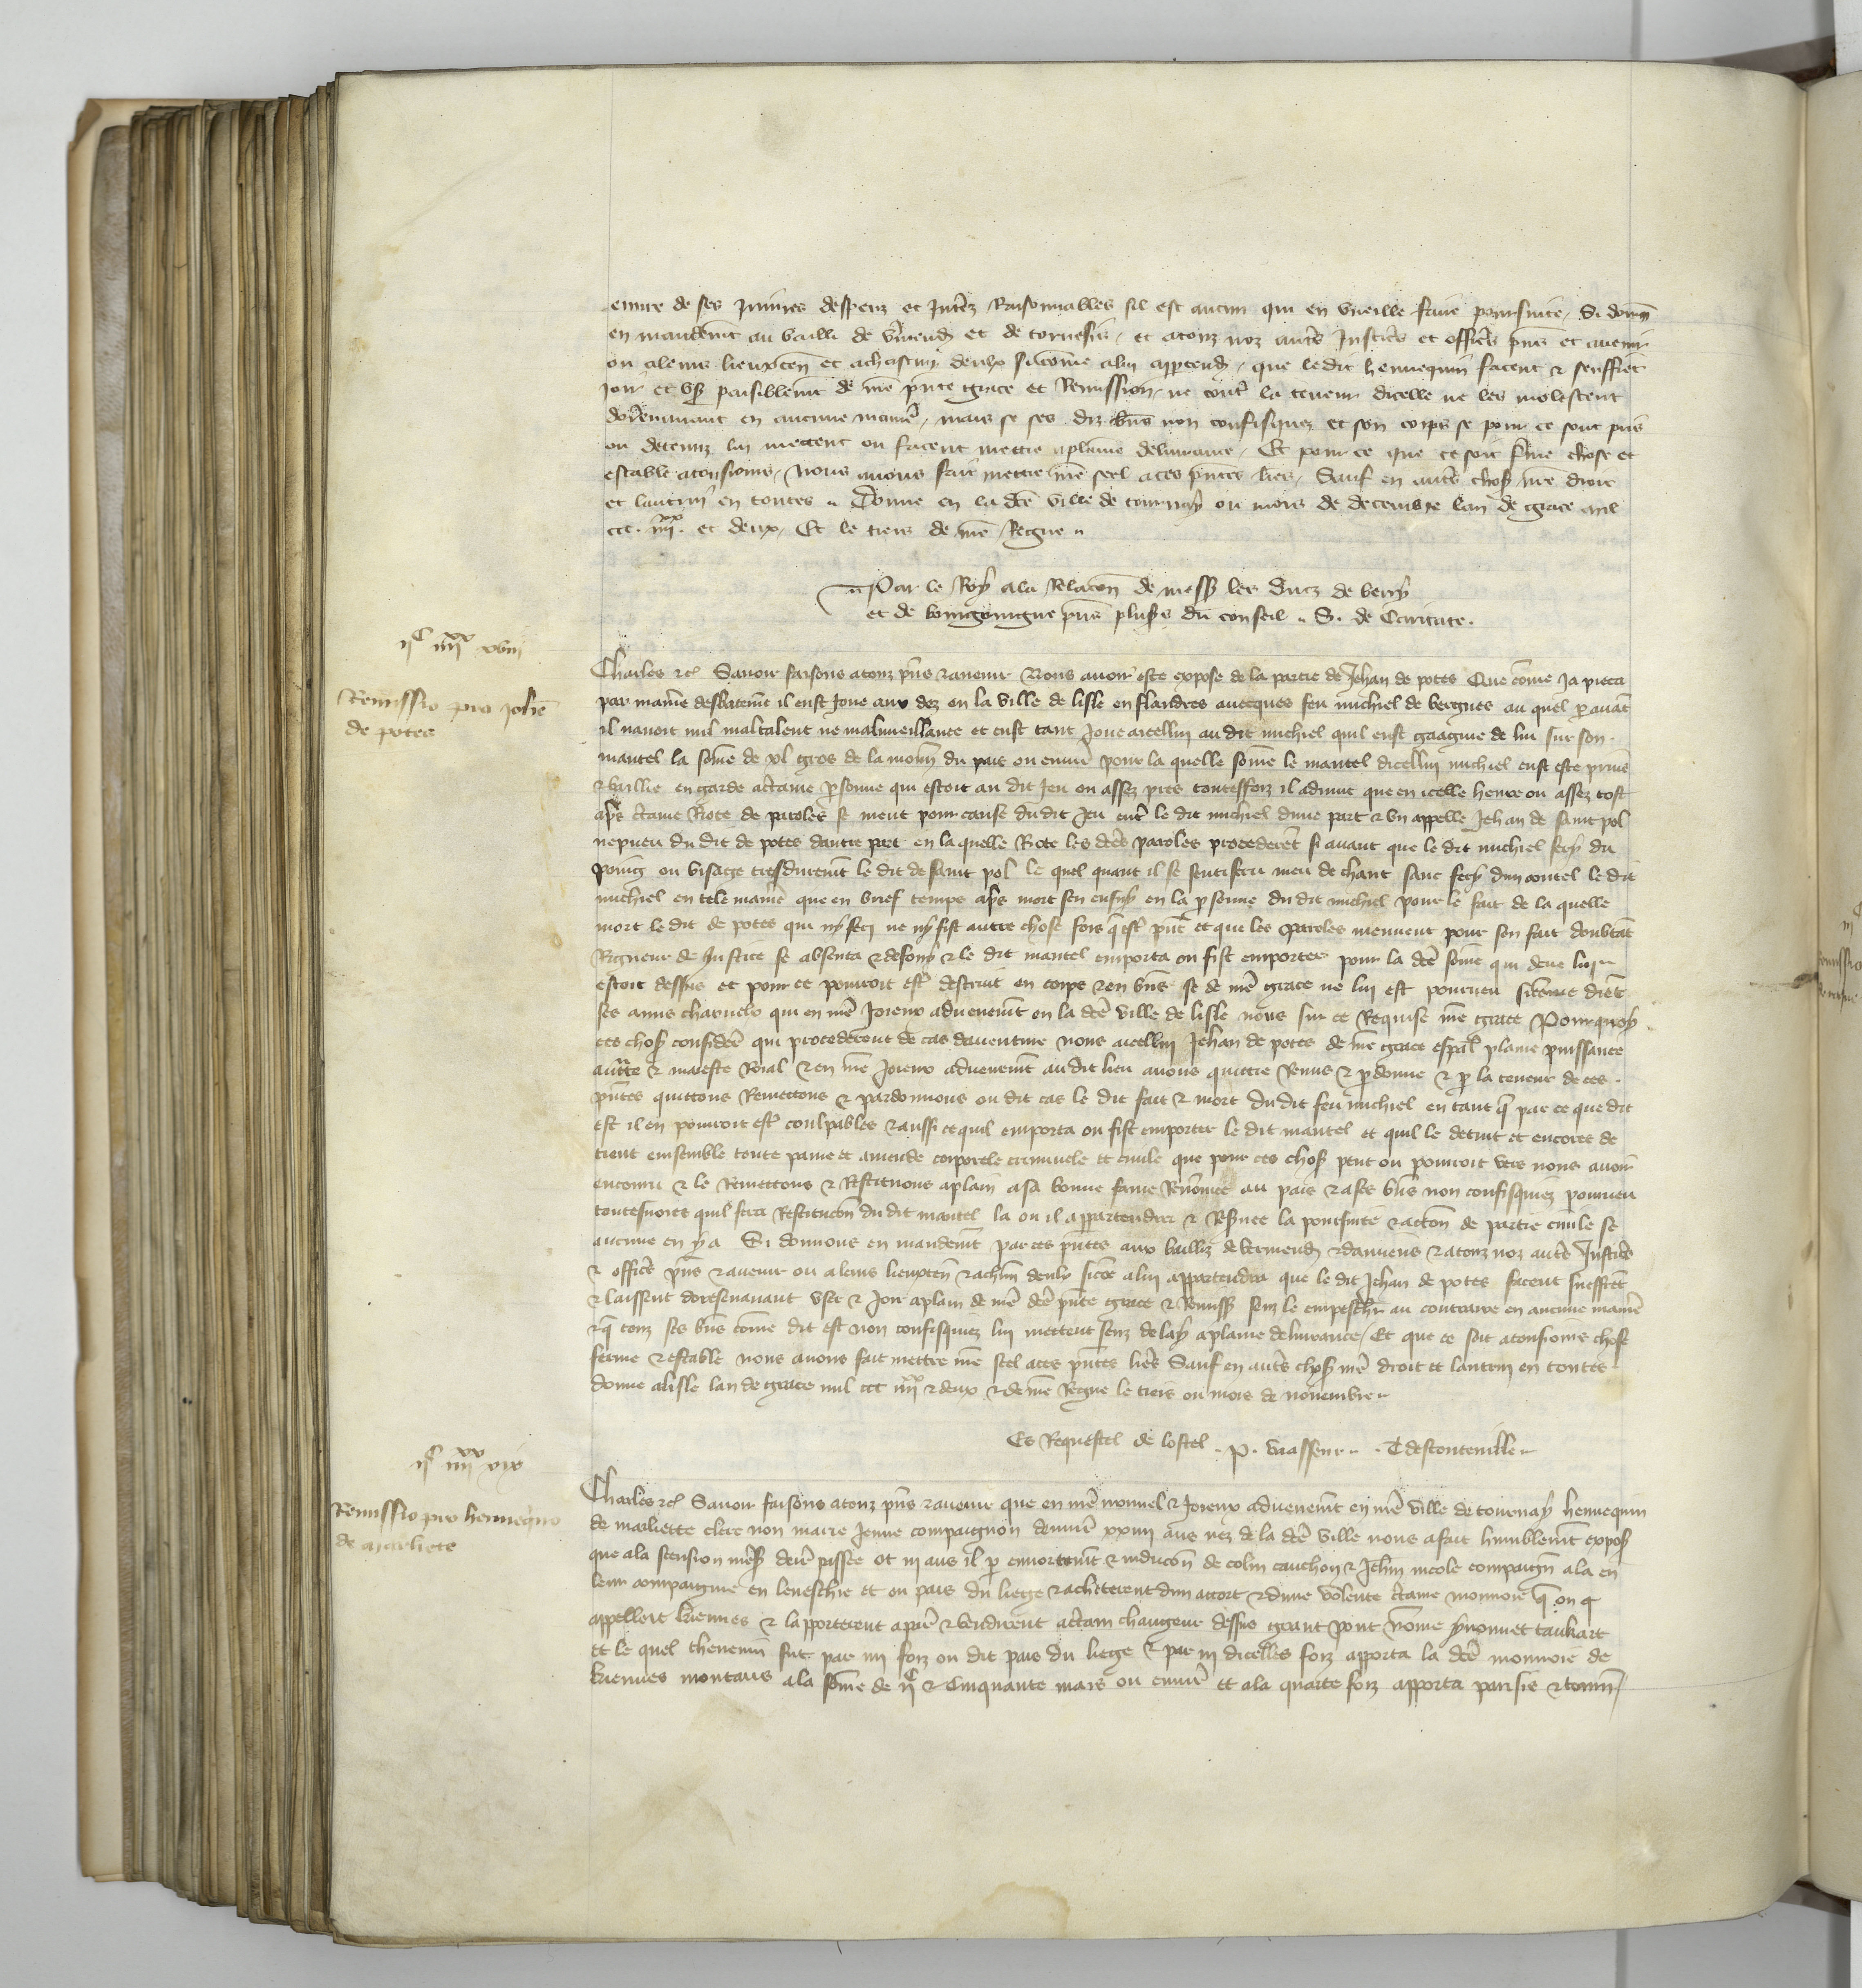 entre de ses Iniures despens et Inters Raisonnables sil est aucun qui en vueille faire poursuite, Si donn
en mandemt au bailli de Virmend et de tornesis, et a touz noz autrs Justicrs et officrs pns et avenir
ou a leurs lieuxten et a chascun deulx si comme a lui apptend, que le dit hennequin facent & seuffret
Joir et user paisiblemt de nre pnte grace et Remission, ne contr la teneur dicelle ne les molestent
doresenavant en aucune manir, mais se ses diz biens non confisquez et son corps se pour ce sont pris
ou detenuz lui mettent ou facent mettre a plaine delivrance, Et pour ce que ce soit ferme chose et
estable a tousiours, Nous avons fait mettre nre scel a ces pntes lres, Sauf en autrs choses nre droit
et lautrui en toutes. Donne en la dce ville de tournay ou mois de decembre lan de grace mil
ccc. iiiixx. et deux, Et le tiers de nre Regne
Par le Roy a la Relacon de mess les ducz de berry
et de bourgoingne pns plusrs du conseil. S. de Caritate.
iic iiiixx xviii
Remissio pro Johe
de potes
Charles etc Savoir faisons a touz pns & avenir Nous avoir este expose de la partie de Jehan de potes Que comme Ja pieca
par manire desbatemt il eust Joue aux dez en la ville de lisle en flandres avecques feu michiel de vergnes au quel par avant
il navoit nul maltalent ne malvueillance et eust tant Joue a icellui au dit michiel quil eust gaagnie de lui sur son
mantel la somme de xl gros de la monn du pais ou envir pour la quelle somme le mantel dicellui michiel eust este prins
& baillie en garde a crtaine personne qui estoit au dit Jeu ou assez pres toutesfoiz il advint que en icelle heure ou assez tost
aprs crtaine Riote de paroles se meut pour cause dudit Jeu entr le dit michiel dune part & un appelle Jehan de saint pol
nepveu du dit de potes dautre part en la quelle Riote les dces paroles procederent si avant que le dit michiel fery du
poing ou visaige tresduremt le dit de saint pol le quel quant il se senti feru meu de chaut sanc fery dun coutel le dit
michiel en tele manire que en brief temps aprs mort sen ensuy en la personne du dit michiel pour le fait de la quelle
mort le dit de potes qui ny feri ne ny fist autre chose fors q estr pnt et que les paroles meuvent pour son fait doubtat
Rigueur de Justice se absenta & defouy & le dit mantel emporta ou fist emporter pour la dce somme qui deue lui
estoit dessus et pour ce pourroit estr destruit en corps & en biens se de nre grace ne lui est pourveu sicomme dient
ses amis charnelz qui en nre Joieux advenemt en la dce ville de lisle nous sur ce Requise nre grace Pourquoy
ces choses considere qui procederent de cas daventure nous a icellui Jehan de potes de nre grace espal plaine puissance
auctte & maieste Roial & en nre Joieux advenemt au dit lieu avons quittie Remis & pardonne & par la teneur de ces
pntes quittons Remettons & pardonnons ou dit cas le dit fait & mort du dit feu michiel en tant q par ce que dit
est il en pourroit estr coulpables & aussi ce quil emporta ou fist emporter le dit mantel et quil le detint et encores de
tient ensemble toute paine et amende corporele criminele et civile que pour ces choses peut ou pourroit vers nous avoir
encouru & le Remettons & Restituons a plain a sa bonne fame Renommee au pais & a ses biens non confisquiez pourveu
toutesvoies quil fera Restitucon du dit mantel la ou il appartendra & Reservee la poursuite & action de partie civile se
aucune en y a Si donnons en mandemt par ces pntes aux bailliz de Vermend & damiens & a touz noz autrs Justicrs
& officrs pns & avenir ou a leurs lieuxten & a chun deulx sicomme a lui appartendra que le dit Jehan de potes facent sueffret
& laissent doresenavant user & Joir a plain de nre dce pnte grace & Remiss senz le empeschr au contraire en aucune manire
& q touz ses biens comme dit est non confisquiez lui mettent senz delay a plaine delivrance, Et que ce soit a tousiours chose
ferme & estable nous avons fait mettre nre scel a ces pntes lres Sauf en autrs choses nre droit et lautrui en toutes
donne a lisle lan de grace mil ccc iiiixx & deux & de nre Regne le tiers ou mois de novembre
Es Requestes de lostel. P. vrasseur. T destouteville
iic iiiixx xix
Remissio pro hennequino
de marliete
Charles etc Savoir faisons a touz pns & avenir que en nre nouvel & Joieux advenemt en nre ville de tournay hennequin
de marliette clerc non marie Jeune compaignon denvir xxiiii ans nez de la dce ville nous a fait humblemt exposer
que a la scension nres derr passee ot iii ans il par enhortemt & inducon de colin cauchon & Jehan nicole compaign ala en
leur compaignie en leveschie et ou pais du liege & acheterent dun acort & dune volente crtaine monnoie q on
appelloit buennes & lapporterent a paris & vendirent a crtain changeur dessus grant pont nomme ynonnet taukart
et le quel thevenin fut par iiii foiz ou dit pais du liege & par iii dicelles foiz apporta la dce monnoie de
buennes montans a la somme de iic & Cinquante mars ou envir et a la quarte foiz apporta parisis & tourn